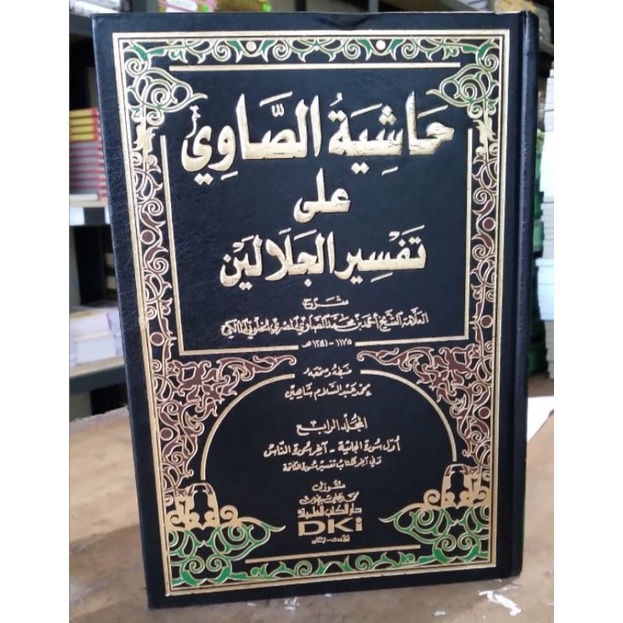 حَاشِيَةُ الصَّاوِي
عَلى
تَفْسِير الجَلَالَين
شَرح
العلامة الشيخ أحمد بن محمد الصاوي المصري الخلوتي المالكي
١١٧٥ - ١٢٤١ هـ
ضبطه وصححه
محمد عبد السلام شاهين
المجلد الرابع
أول سورة الجاثية - آخر سورة الناس
وفي آخر الكتاب تفسير سورة الفاتحة
منشورات
محمد علي بيضون
دار الكتب العلمية
DKi
بيروت - لبنان